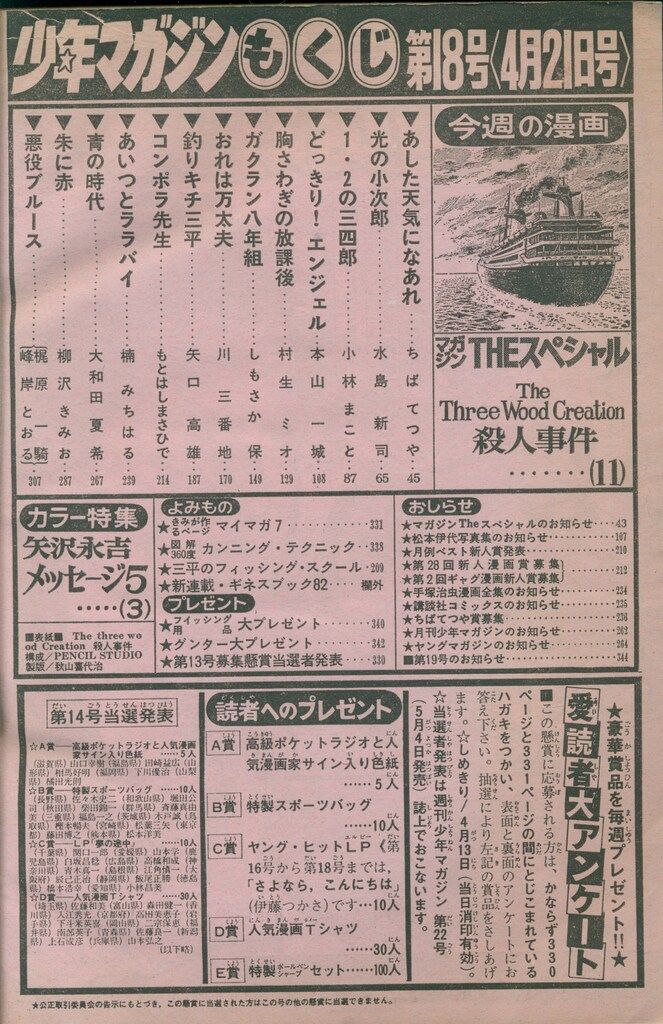 少年マガジンもくじ 第18号〈4月21日号〉
今週の漫画
マガジンTHEスペシャル
The
Three Wood Creation
殺人事件
……(11)
▼あした天気になあれ……ちばてつや 45
▼光の小次郎……水島新司 65
▼1・2の三四郎……小林まこと 87
▼どっきり！エンジェル……本山一城 108
▼胸さわぎの放課後……村生ミオ 129
▼ガクラン八年組……しもさか保 149
▼おれは万太夫……川三番地 170
▼釣りキチ三平……矢口高雄 187
▼コンポラ先生……もとはしまさひで 214
▼あいつとララバイ……楠みちはる 239
▼青の時代……大和田夏希 267
▼朱に赤……柳沢きみお 287
▼悪役ブルース……梶原一騎 峰岸とおる 307
カラー特集
矢沢永吉
メッセージ5
……(3)
■表紙■ The three wo
od Creation 殺人事件
構成／PENCIL STUDIO
製版／秋山喜代治
よみもの
★きみが作るページ マイマガ7……331
★図解360度 カンニング・テクニック……338
★三平のフィッシング・スクール……209
★新連載・ギネスブック82……欄外
プレゼント
★フィッシング用品 大プレゼント……340
★グンター大プレゼント……342
★第13号募集懸賞当選者発表……330
おしらせ
★マガジンTheスペシャルのお知らせ……43
★松本伊代写真集のお知らせ……107
★月例ベスト新人賞発表……210
★第28回新人漫画賞募集
★第2回ギャグ漫画新人賞募集……212
★手塚治虫漫画全集のお知らせ……234
★講談社コミックスのお知らせ……235
★ちばてつや賞募集……236
★月刊少年マガジンのお知らせ……262
★ヤングマガジンのお知らせ……264
■第19号のお知らせ……344
★豪華賞品を毎週プレゼント!!★
愛読者大アンケート
■この懸賞に応募される方は、かならず330
ページと331ページの間にとじこまれている
ハガキをつかい、表面と裏面のアンケートにお
答え下さい。抽選により左記の賞品をさしあげ
ます。☆しめきり／4月13日（当日消印有効）。
☆当選者発表は週刊少年マガジン第22号
（5月4日発売）誌上でおこないます。
読者へのプレゼント
A賞 高級ポケットラジオと人
気漫画家サイン入り色紙
……5人
B賞 特製スポーツバッグ
……10人
C賞 ヤング・ヒットLP《第
16号から第18号までは、
「さよなら、こんにちは」
(伊藤つかさ)です…10人
D賞 人気漫画Tシャツ
……30人
E賞 特製ボールペンシャープセット……100人
第14号当選発表
☆A賞──高級ポケットラジオと人気漫画
家サイン入り色紙……5人
☆B賞──特製スポーツバッグ……10人
☆C賞──LP「夢の途中」……10人
☆D賞──人気漫画Tシャツ……30人
（以下略）
★公正取引委員会の告示にもとづき、この懸賞に当選された方はこの号の他の懸賞に当選できません。